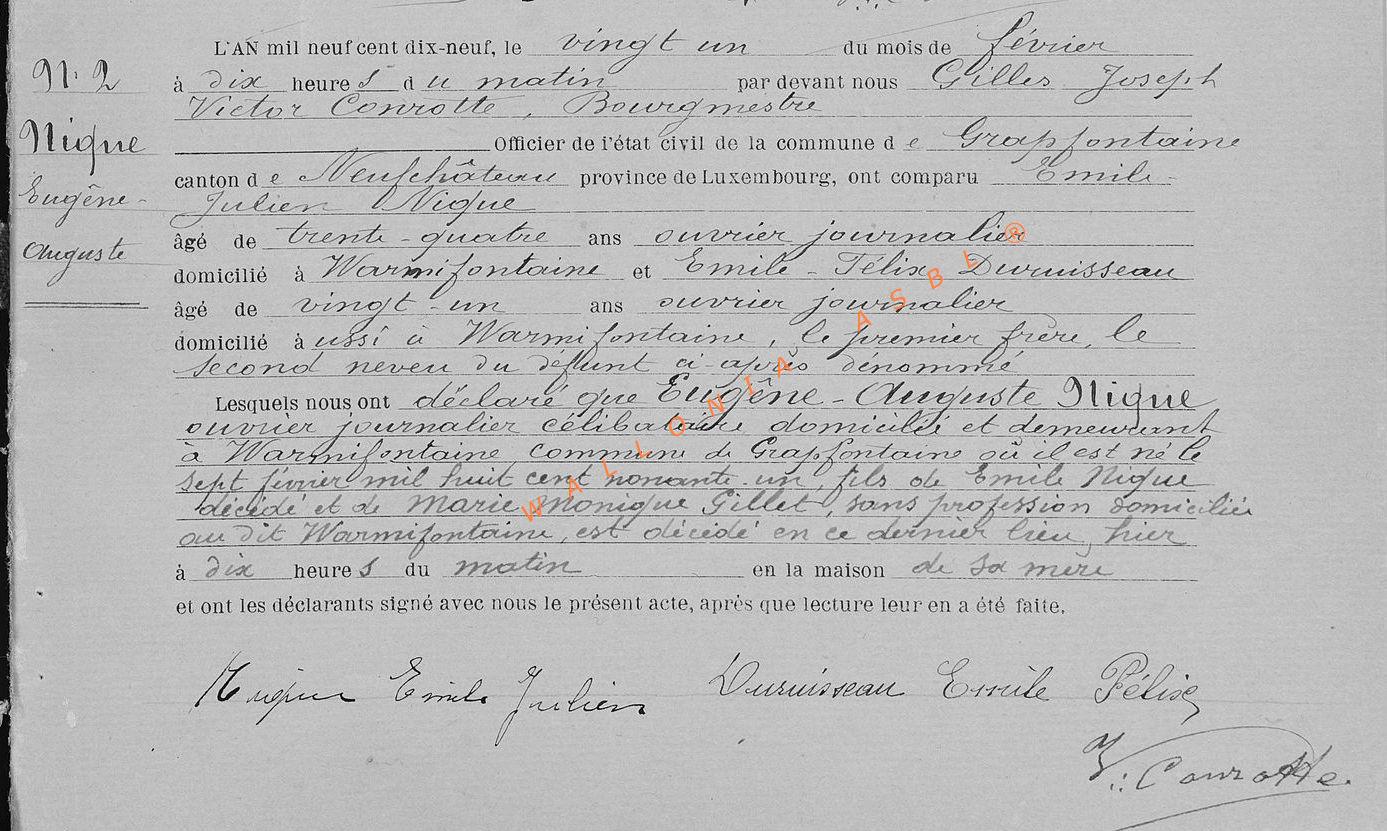 L'AN mil neuf cent dix-neuf, le vingt un du mois de février
N° 2
à dix heures du matin par devant nous Gilles Joseph
Victor Conrotte, Bourgmestre
Nique
Officier de l'état civil de la commune de Grapfontaine
canton de Neufchâteau province de Luxembourg, ont comparu Emile-
Eugêne-
Julien Nique
Auguste
âgé de trente-quatre ans ouvrier journalier
domicilié à Warmifontaine et Emile-Félix Duruisseau
âgé de vingt-un ans ouvrier journalier
domicilié aussi à Warmifontaine, le premier frère, le
second neveu du défunt ci-après dénommé
Lesquels nous ont déclaré que Eugêne-Auguste Nique
ouvrier journalier célibataire domicilié et demeurant
à Warmifontaine commune de Grapfontaine où il est né le
sept février mil huit cent nonante-un, fils de Emile Nique
décédé et de Marie Monique Gillet, sans profession domiciliée
au dit Warmifontaine, est décédé en ce dernier lieu, hier
à dix heures du matin en la maison de sa mère
et ont les déclarants signé avec nous le présent acte, après que lecture leur en a été faite.
Nique Emile Julien Duruisseau Emile Félix
V. Conrotte
WALLONIA ASBL ®